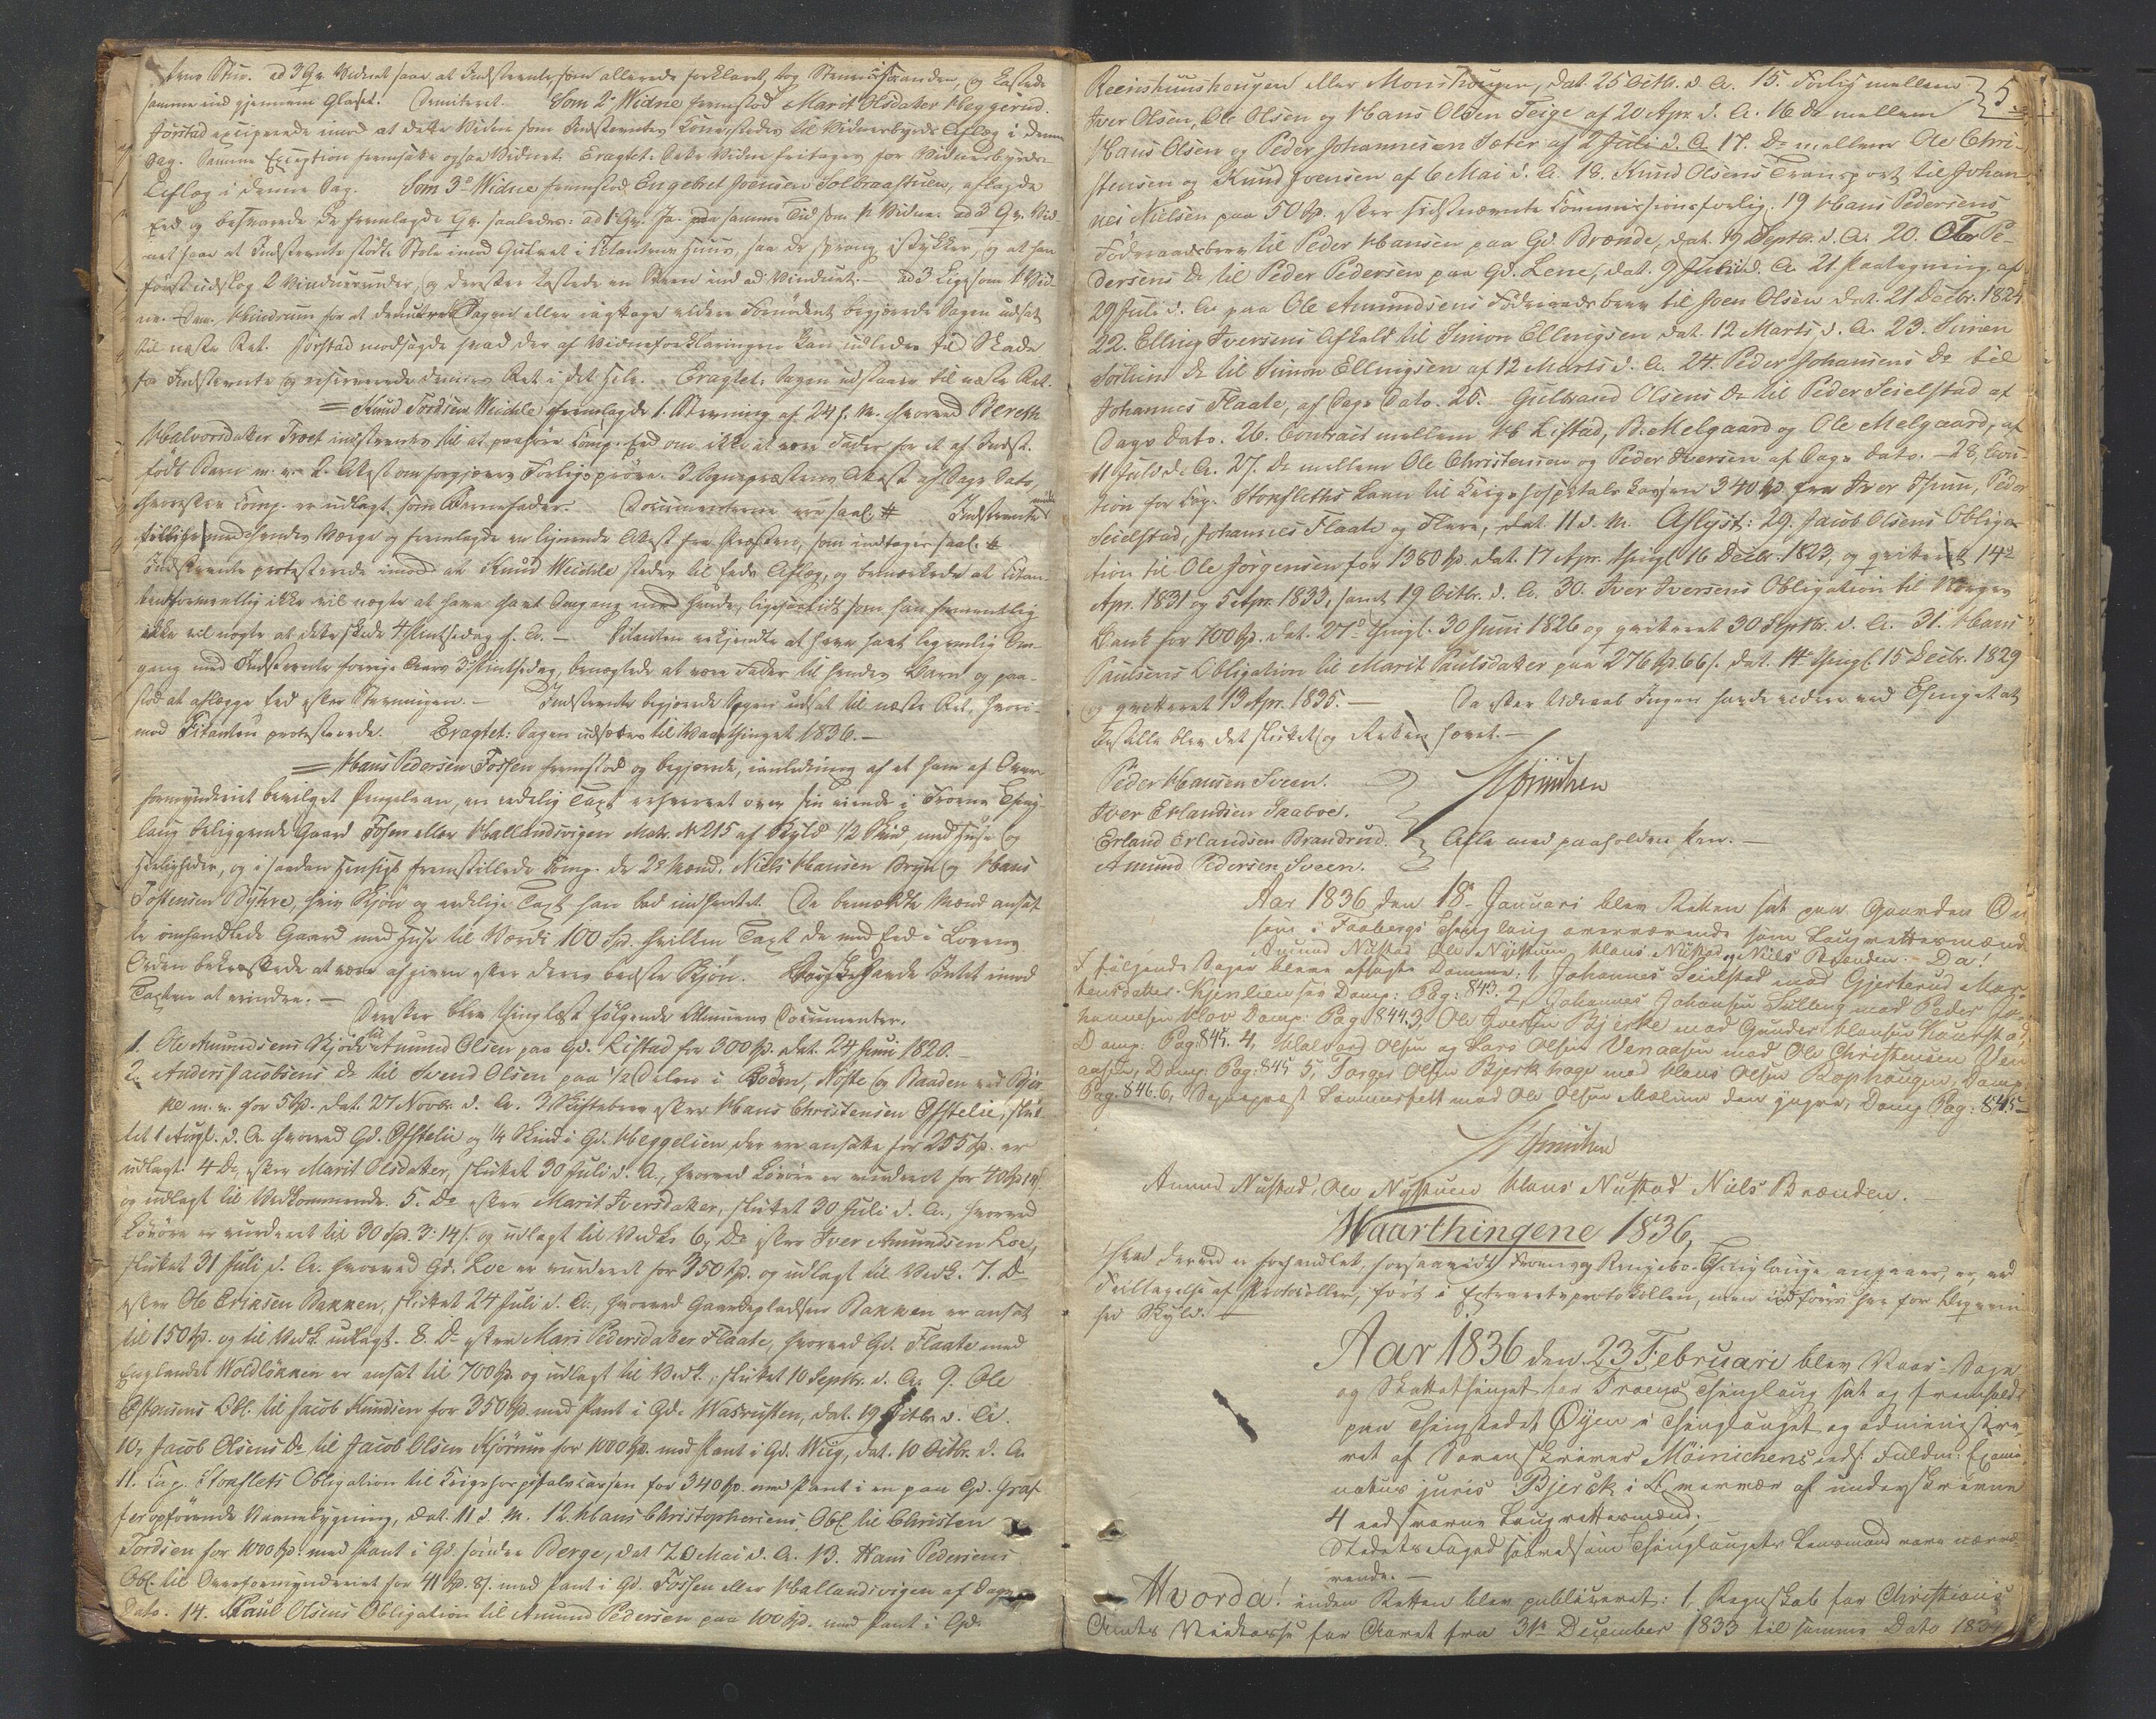 tens Stue. ad 3 Qv. Vidnet saae at Indstevnte som allerede forklaret, tog Steen fra, og kastede
samme ind gjennem Glasset. Demitteret. Som 2de Widne fremstod Marit Olsdatter Heggerud.
Jørstad exciperede imod at dette Vidne som Indstevntes Kone stedes til Vidnesbyrds Aflæg i denne
Sag. Samme Exception fremsatte ogsaa Vidnet. Eragtet: Dette Vidne fritages for Vidnesbyrds
Aflæg i denne Sag. Som 3de Widne fremstod Engebret Joensen Solbraastuen, aflagde
Eed og besvarede de fremlagde Qv. saaledes: ad 1 Qv. Ja. paa samme Tid som 1ste Vidne. ad 3 Qv. Vid-
net saae at Indstevnte stødte Stole imod Gulvet i Citantens Huus, saa de sprang i Stykker, og at han
først udslog 2 Vinduesruder, og derefter kastede en Steen ind ad Vinduet. — ad 3 Ligesom 1 Vid-
ne. Dem. begjærede Sagen udsat
til næste Ret. Jørstad modsagde hvad der af Vidneforklaringene kan udledes til Skade
for Indstevnte og reserverede dennes Ret i det Hele. Eragtet: Sagen udstaaer til næste Ret.
= Knud Tordsen Weichle fremlagde 1. Stevning af 24 f. M. hvorved Bereth
Halvorsdatter Troet indstevnes til at paahøre Comp. Eed om ikke at være Fader for et af Indst.
født Barn m. v. 2. Attest om forgjæves Forligsprøve. 3. Sognepræstens Attest af Dags Dato,
hvorefter Comp. er udlagt som Barnefader. Documenterne ere saal. # Indstevnte mødte
tillige med hendes Værge og fremlagde en lignende Attest fra Præsten, som indtages saal. #
Indstevnte protesterede imod at Knud Weichle stedes til Eeds Aflæg, og bemærkede at Citan-
ten formentlig ikke vil nægte at have havt Omgang med hende, ligesaalidt som han formentlig
ikke vil nægte at dette skede 4 Pintsedag f. A. — Citanten erkjendte at have havt legemlig Om-
gang med Indstevnte forrige Aars 3die Pintsedag, benægtede at være Fader til hendes Barn og paa-
stod at aflægge Eed efter Stevningen. — Indstevnte begjerede Sagen udsat til næste Ret, hvori-
mod Citanten protesterede. Eragtet: Sagen udsættes til Waarthinget 1836. —
= Hans Pedersen Fossen fremstod og begjærede, i Anledning af et ham af Over-
formynderiet bevilget Pengelaan, en edelig Taxt erhvervet over sin eiende i Froens Thing-
laug beliggende Gaard Fossen eller Hallandsvigen Matr. No 215 af Skyld 1/2 Skind, med Huse og
Herligheder, og i saadan Hensigt fremstillede Comp. de 2de Mænd Niels Hansen Bryn og Hans
Tostensen Byhre, hvis Skjøn og edelige Taxt han bad indhentet. De benævnte Mænd ansat-
te omhandlede Gaard med Huse til Værdi 100 Spd. hvilken Taxt de med Eed i Lovens
Orden bekræftede at være afgiven efter deres bedste Skjøn. havde Intet imod
Taxten at erindre. —
Derefter blev thinglæst følgende Almuens Documenter.
1. Ole Amundsens Skjøde til Amund Olsen paa Gd. Listad for 300 Spd. dat. 24 Juni 1820. —
2. Anders Jacobsens Do til Svend Olsen paa 1/2 Delen i Boden, Nøste og Baaden ved Bjer-
ke m. v. for 5 Spd. dat. 27 Novbr. d. A. 3 Skiftebrev efter Hans Christensen Offstelie, slut-
tet 1 Augt. d. A. hvorved Gd. Offstelie og 1/4 Skind i Gd. Heggelien der ere ansatte for 255 Spd. er
udlagt. 4 Do efter Marit Olsdatter, sluttet 30 Juli d. A., hvorved Løvøre er vurderet for 40 Spd.
og udlagt til Vedkommende. 5. Do efter Marit Iversdatter, sluttet 30 Juli d. A., hvorved
Løvøre er vurderet til 30 Spd. 3. 14 s. og udlagt til Vedk. 6. Do efter Iver Amundsen Loe,
sluttet 31 Juli d. A. hvorved Gd. Loe er vurderet for 350 Spd. og udlagt til Vedk. 7. Do
efter Ole Eriksen Bakken, sluttet 24 Juli d. A., hvorved Gaardepladsen Bakken er ansat
til 150 Spd. og til Vedk. udlagt. 8. Do efter Mari Pedersdatter Flaate, hvorved Gd. Flaate med
Englandet Woldløkken er ansat til 700 Spd. og udlagt til Vedk., sluttet 10 Septbr. d. A. 9. Ole
Estensens Obl. til Jacob Knudsen for 350 Spd. med Pant i Gd. Wasrusten, dat. 19 Octbr. d. A.
10, Jacob Olsens Do til Jacob Olsen Kjørum for 1000 Spd. med Pant i Gd. Wiig, dat. 10 Octbr. d. A.
11. Cap. Stonflets Obligation til Krigshospitalscassen for 340 Spd. med Pant i en paa Gd.
opførende Vaanebygning, dat. 11 d. M. 12. Hans Christophersens Obl. til Christen
Tordsen for 1000 Spd. med Pant i Gd. søndre Berge, dat 20 Mai d. A. 13. Hans Pedersens
Obl. til Overformynderiet for 41 Spd. 8 s. med Pant i Gd. Fossen eller Hallandsvigen af Dags
Dato. 14. Paul Olsens Obligation til Amund Pedersen paa 100 Spd. med Pant i Gd.
5
Reenshuushaugen eller Monshaugen, dat. 25 Octb. d. A. 15. Forlig mellem
Iver Olsen, Ole Olsen og Hans Olsen Teige af 20 Apr. d. A. 16 Do mellem
Hans Olsen og Peder Johannesen Sæter af 2 Juli d. A. 17. Do mellem Ole Chri-
stensen og Knud Joensen af 6 Mai d. A. 18. Knud Olsens Transport til Johan
nes Nielsen paa 50 Spd. efter sidstnævnte Commissionsforlig. 19 Hans Pedersens
Føderaadsbrev til Peder Hansen paa Gd. Brænde, dat. 19 Septb. d. A. 20. Ole Pe-
dersens Do til Peder Pedersen paa Gd. Lene, dat. 9 Juli d. A. 21. Paategning af
29 Juli d. A. paa Ole Amundsens Føderaadsbrev til Joen Olsen dat. 21 Decbr. 1824
22. Elling Iversens Afkald til Simon Ellingsen dat. 12 Marts d. A. 23. Simen
Sørlies Do til Simon Ellingsen af 12 Marts d. A. 24. Peder Johansens Do til
Johannes Flaate, af Dags Dato. 25. Gulbrand Olsens Do til Peder Seielstad af
Dags Dato. 26. Contract mellem H. Listad, B. Melgaard og Ole Melgaard, af
11 Juli d. A. 27. Do mellem Ole Christensen og Peder Iversen af Dags Dato. — 28, Cau-
tion for Cap. Stonfleths Laan til Krigshospitals Cassen 340 Spd. fra Iver Thuu, Peder
Seielstad, Johannes Flaate og Flere, dat. 11 d. M. Aflyst: 29. Jacob Olsens Obliga-
tion til Ole Jørgensen for 1380 Spd. dat. 17 Apr. thingl. 16 Decbr. 1823, og qvitteret 14de
Apr. 1831 og 5 Apr. 1833, samt 19 Octbr. d. A. 30. Iver Iversens Obligation til Norges
Bank for 700 Spd. dat. 27de thingl. 30 Juni 1826 og qvitteret 30 Septbr. d. A. 31. Hans
Paulsens Obligation til Marit Paulsdatter paa 276 Spd. 66 s. dat. 14 thingl. 15 Decbr. 1829
og qvitteret 13 Apr. 1835. — Da efter Udraab Ingen havde videre ved Thinget at
bestille blev det sluttet og Retten hævet. —
Peder Hansen Sveen.
Iver Erlandsen Saaboe.
Erland Erlandsen Brandrud.
Amund Pedersen Sveen.
Alle med paaholden Pen. —
Møinichen
Aar 1836 den 18de Januari blev Retten sat paa Gaarden
i Faabergs Thinglaug overværende som Laugrettesmænd
Amund Nustad Ole Nystuen Hans Nustad og Niels Brænden. — Da!
I følgende Sager bleve afsagte Domme: 1, Johannes Seielstad mod Gjertrud Mor-
tensdatter Kjenlien Domp: Pag: 843. 2, Johannes Johansen Sulleng mod Peder Jo-
hannesen Hov Domp: Pag 844. 3, Ole Iversen Bjerke mod Gunder Hansen Haugstad,
Domp: Pag: 845. 4, Halvard Olsen og Lars Olsen Venaasen mod Ole Christensen Ven
aasen, Domp: Pag: 845 5, Torger Olsen Bjerkhage mod Hans Olsen Rophaugen, Domp:
Pag. 846. 6, Sognepræst mod Ole Olsen Mælum den yngre, Domp. Pag: 845—
Møinichen
Amund Nustad, Ole Nystuen Hans Nustad Niels Brænden. —
Waarthingene 1836,
hvad derved er forhandlet, forsaavidt Froens og Ringebo Thinglauge angaaer, er, ved
Feiltagelse af Protocollen, ført i Extraretsprotokollen, men indføres her for
Skyld. —
Aar 1836 den 23 Februari blev Vaar-Sage
og Skattethinget for Froens Thinglaug sat og fremholdt
paa Thingstedet Øyen i Thinglauget og administre-
ret af Sorenskriver Møinichens eds. Fuldm: Exami-
natus juris Bjerck i Overvær af underskrevne
4 eedsvorne Laugrettesmænd,
Stedets Foged saavelsom Thinglaugets Lensmand vare nærvæ-
rende. —
Hvorda! inden Retten blev publiceret: 1, Regnskab for Christians
Amts Veikasse for Aaret fra 31te December 1833 til samme Dato 1834